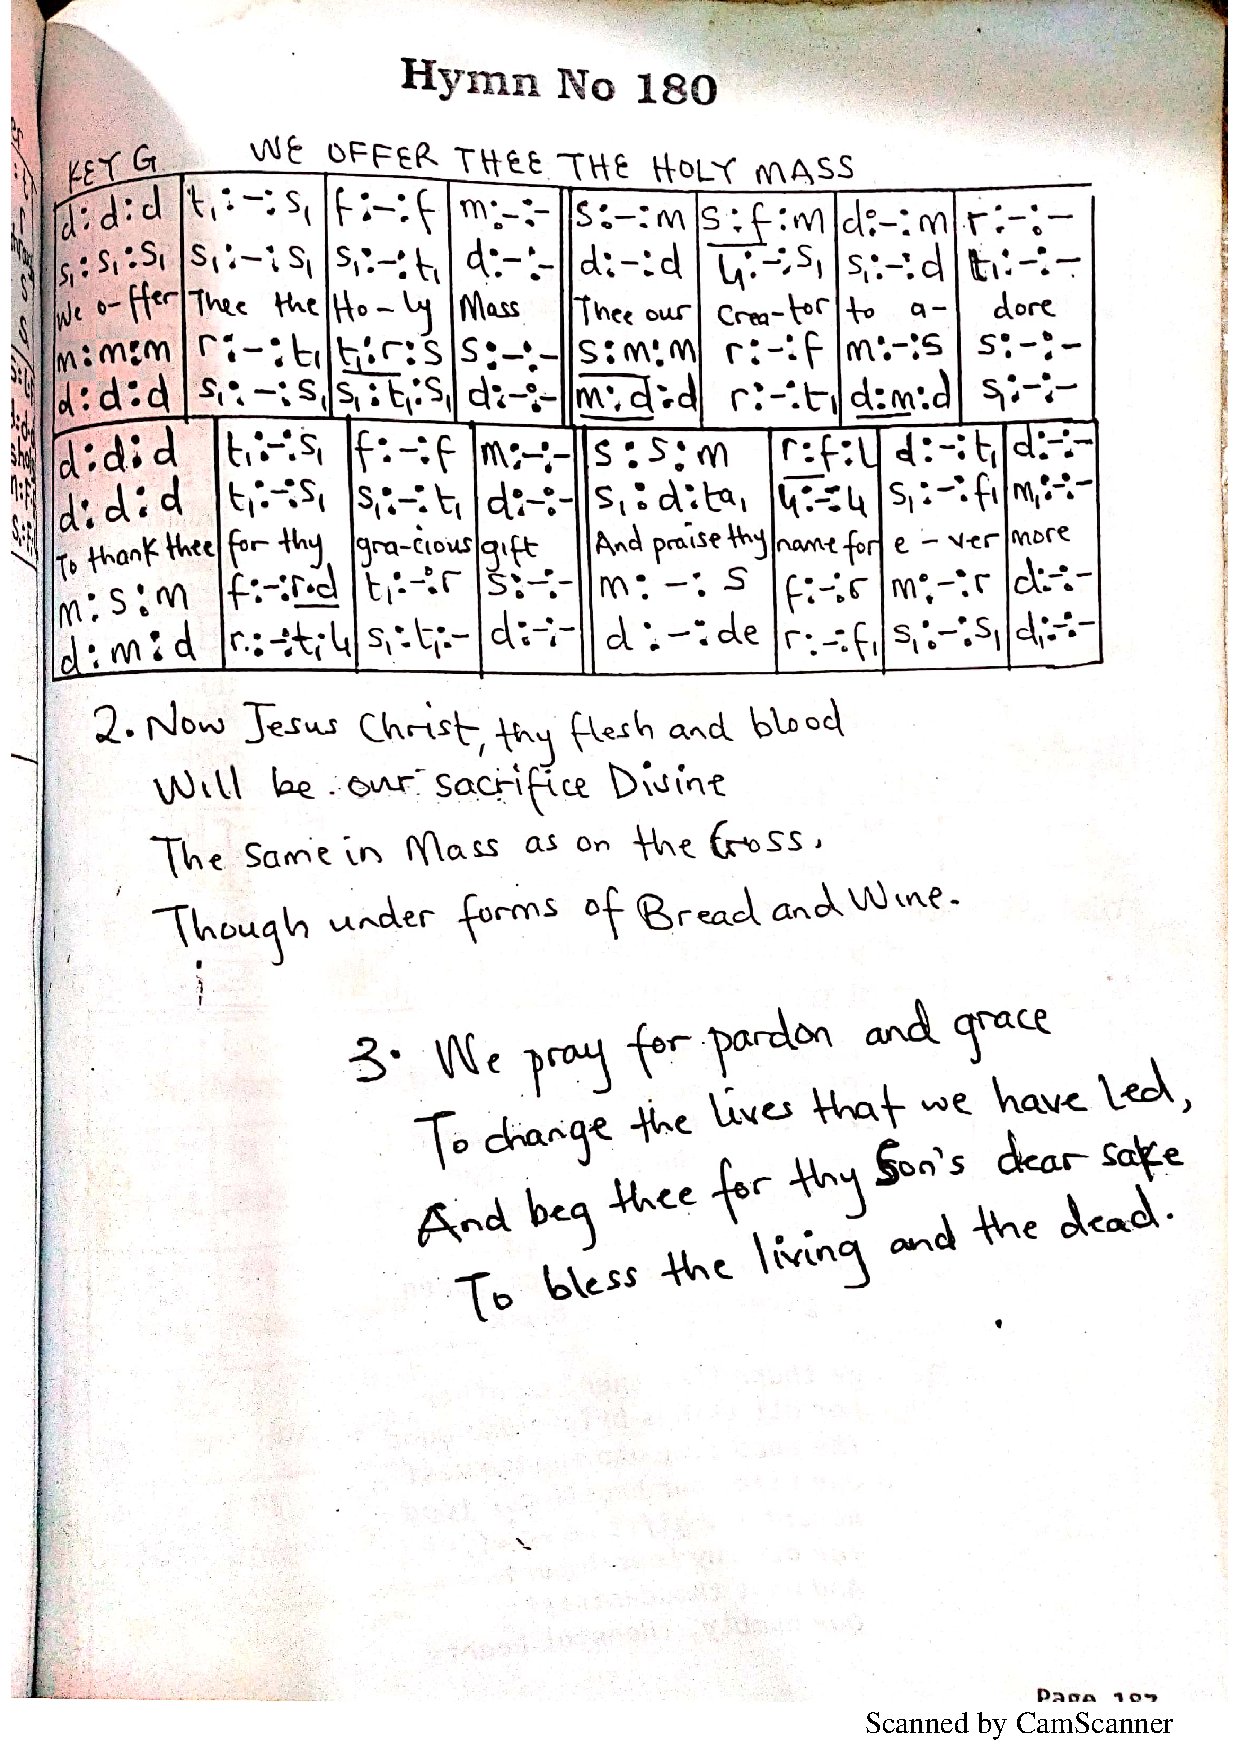 Hymn No 180
KEY G WE OFFER THEE THE HOLY MASS
d:d:d | t₁:-:s₁ | f:-:f | m:-:- || s:-:m | s:f:m | d:-:m | r:-:-
s₁:s₁:s₁ | s₁:-:s₁ | s₁:-:t₁ | d:-:- || d:-:d | l₁:-:s₁ | s₁:-:d | t₁:-:-
We o-ffer | Thee the | Ho-ly | Mass || Thee our | Crea-tor | to a- | dore
m:m:m | r:-:t₁ | t₁:r:s | s:-:- || s:m:m | r:-:f | m:-:s | s:-:-
d:d:d | s₁:-:s₁ | s₁:t₁:s₁ | d:-:- || m:d:d | r:-:t₁ | d:m:d | s₁:-:-
d:d:d | t₁:-:s₁ | f:-:f | m:-:- || s:s:m | r:f:l | d:-:t₁ | d:-:-
d:d:d | t₁:-:s₁ | s₁:-:t₁ | d:-:- || s₁:d:ta₁ | l₁:-:l₁ | s₁:-:f₁ | m₁:-:-
To thank thee | for thy | gra-cious | gift || And praise thy | name for | e-ver | more
m:s:m | f:-:r.d | t₁:-:r | s:-:- || m:-:s | f:-:r | m:-:r | d:-:-
d:m:d | r:-:t₁:l₁ | s₁:t₁:- | d:-:- || d:-:de | r:-:f₁ | s₁:-:s₁ | d₁:-:-
2. Now Jesus Christ, thy flesh and blood
Will be our sacrifice Divine
The same in Mass as on the Cross.
Though under forms of Bread and Wine.
3. We pray for pardon and grace
To change the lives that we have led,
And beg thee for thy Son's dear sake
To bless the living and the dead.
Page 187
Scanned by CamScanner